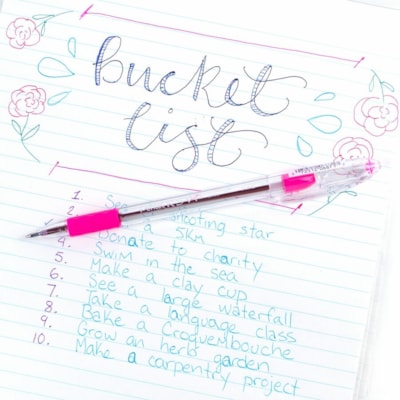 bucket
list
1. See a shooting star
2. 5KM
Donate to charity
4. Swim in the sea
5. Make a clay cup
6. See a large waterfall
7. Take a language class
8. Bake a Croquembouche
9. Grow an herb garden
10. Make a carpentry project